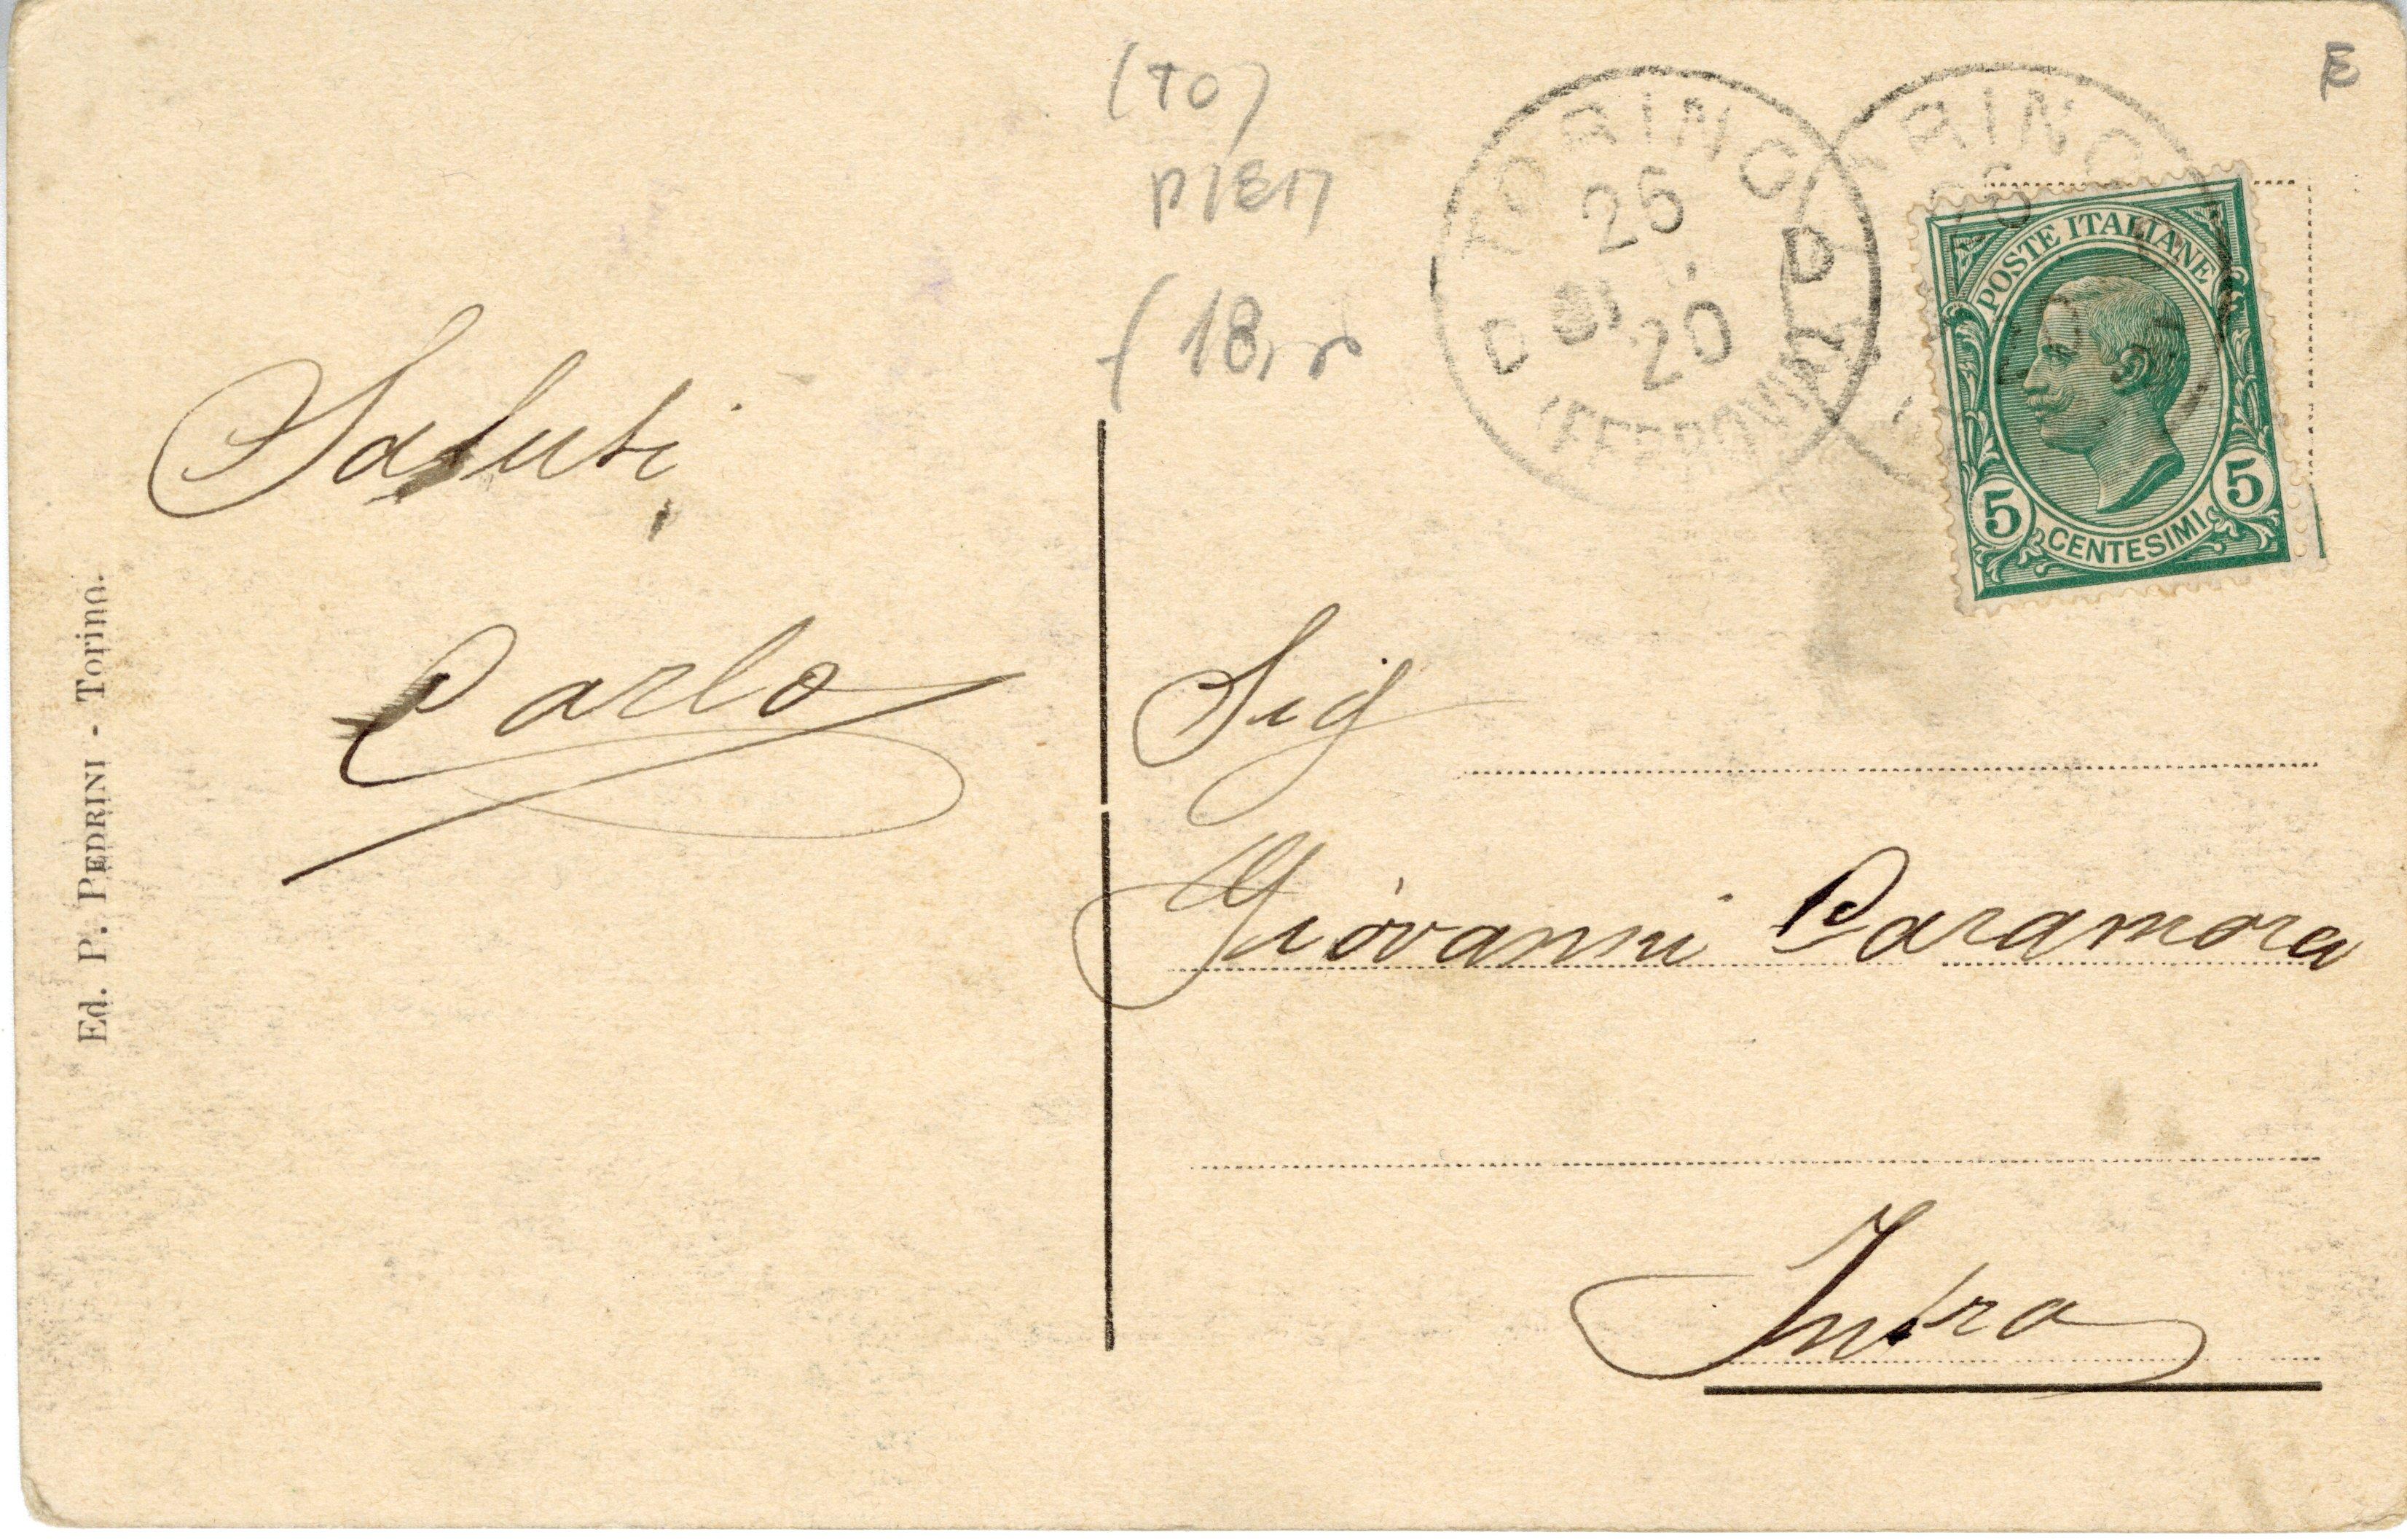 (TO)
PIEM
TORINO
25
20
FERROVIA
POSTE ITALIANE
5 CENTESIMI 5
Saluti
Carlo
Sig
Giovanni Caramora
Intra
Ed. P. PEDRINI - Torino.